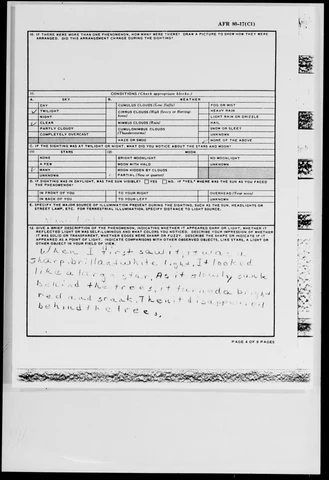 AFR 80-17(C1)
10. IF THERE WERE MORE THAN ONE PHENOMENON, HOW MANY WERE THERE? DRAW A PICTURE TO SHOW HOW THEY WERE
ARRANGED. DID THIS ARRANGEMENT CHANGE DURING THE SIGHTING?
11. CONDITIONS (Check appropriate blocks.)
A. SKY B. WEATHER
DAY CUMULUS CLOUDS (Low fluffy) FOG OR MIST
TWILIGHT CIRRUS CLOUDS (High fleecy or Herringbone) HEAVY RAIN
NIGHT LIGHT RAIN OR DRIZZLE
CLEAR NIMBUS CLOUDS (Rain) HAIL
PARTLY CLOUDY CUMULONIMBUS CLOUDS (Thunderstorms) SNOW OR SLEET
COMPLETELY OVERCAST UNKNOWN
HAZE OR SMOG NONE OF THE ABOVE
C. IF THE SIGHTING WAS AT TWILIGHT OR NIGHT, WHAT DID YOU NOTICE ABOUT THE STARS AND MOON?
(1) STARS (2) MOON
NONE BRIGHT MOONLIGHT NO MOONLIGHT
A FEW MOON WITH HALO UNKNOWN
MANY MOON HIDDEN BY CLOUDS
UNKNOWN PARTIAL (New or quarter)
D. IF SIGHTING WAS IN DAYLIGHT, WAS THE SUN VISIBLE? YES NO. IF "YES," WHERE WAS THE SUN AS YOU FACED
THE PHENOMENON?
IN FRONT OF YOU TO YOUR RIGHT OVERHEAD (Near noon)
IN BACK OF YOU TO YOUR LEFT UNKNOWN
E. SPECIFY THE MAJOR SOURCE OF ILLUMINATION PRESENT DURING THE SIGHTING, SUCH AS THE SUN, HEADLIGHTS OR
STREET LAMP, ETC. FOR TERRESTRIAL ILLUMINATION, SPECIFY DISTANCE TO LIGHT SOURCE.
12. GIVE A BRIEF DESCRIPTION OF THE PHENOMENON, INDICATING WHETHER IT APPEARED DARK OR LIGHT, WHETHER IT
REFLECTED LIGHT OR WAS SELF-LUMINOUS AND WHAT COLORS YOU NOTICED. DESCRIBE YOUR IMPRESSION OF WHETHER
IT WAS SOLID OR TRANSPARENT, WHETHER EDGES WERE SHARP OR FUZZY. DESCRIBE THE SHAPE OR INDICATE IF IT
APPEARED AS A POINT OF LIGHT. INDICATE COMPARISONS WITH OTHER OBSERVED OBJECTS, LIKE STARS, A LIGHT OR
OTHER OBJECT IN YOUR FIELD OF VIEW.
When I first saw it, it was a
sharp brilliand white light. It looked
like a large star. As it slowly sank
behind the trees, it turned a bright
red and sank. Then it disappeared
behind the trees.
PAGE 4 OF 9 PAGES